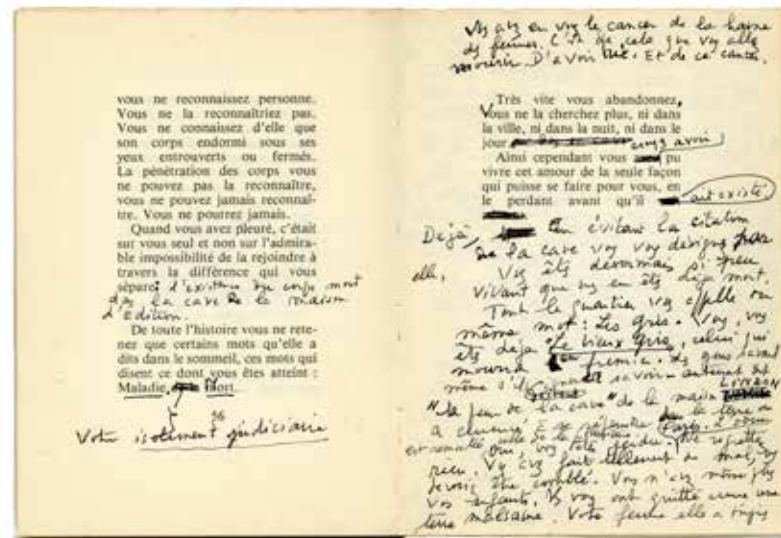 vous ne reconnaissez personne.
Vous ne la reconnaîtriez pas.
Vous ne connaissez d'elle que
son corps endormi sous ses
yeux entrouverts ou fermés.
La pénétration des corps vous
ne pouvez pas la reconnaître,
vous ne pouvez jamais reconnaî-
tre. Vous ne pourrez jamais.
Quand vous avez pleuré, c'était
sur vous seul et non sur l'admira-
ble impossibilité de la rejoindre à
travers la différence qui vous
sépare: d'existence du corps mort
ds la cave de la maison
d'Edition.
De toute l'histoire vous ne rete-
nez que certains mots qu'elle a
dits dans le sommeil, ces mots qui
disent ce dont vous êtes atteint :
Maladie, Mort.
56
Votre isolement judiciaire
Vs avez en vous le cancer de la haine
des femmes. C'est de cela que vous allez
mourir. D'avoir tué. Et de ce cancer.
Très vite vous abandonnez,
Vous ne la cherchez plus, ni dans
la ville, ni dans la nuit, ni dans le
jour
Ainsi cependant vous avez pu
vivre cet amour de la seule façon
qui puisse se faire pour vous, en
le perdant avant qu'il ait existé.
Déjà, en évitant la citation
de la cave vous vous désignez par
elle. Vs êtes désormais si peu
vivant que vous en êtes déjà mort.
Tout le quartier vous appelle du
même mot: Les gris. Vous, vous
êtes déjà le vieux gris, celui qui
mourra le premier. Les gens savent
même s'ils savoir
"la peur de la cave" de la maison
a commencé à se répandre la terre
Paris. L'odeur
est celle de la
oui, vous êtes perdu. Ne regrettez
rien. Vs avez fait tellement de mal, vs
devriez être comblé. Vous n'avez même plus
vos enfants, Ils vous ont quitté comme une
terre malsaine. Votre femme elle a